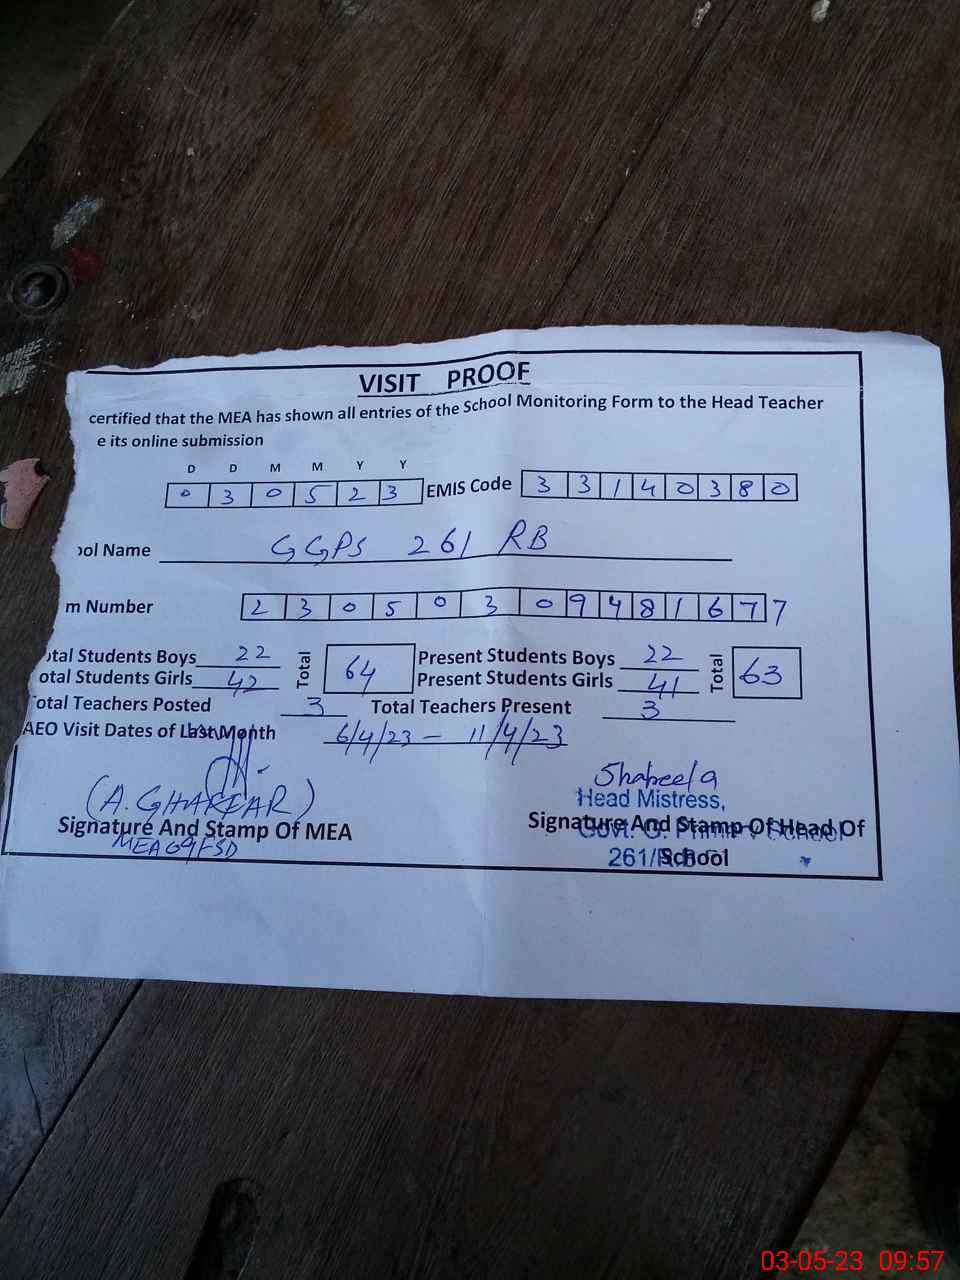 VISIT PROOF
certified that the MEA has shown all entries of the School Monitoring Form to the Head Teacher
e its online submission
D D M M Y Y
0 3 0 5 2 3 EMIS Code 3 3 1 4 0 3 8 0
ool Name GGPS 261 RB
m Number 2 3 0 5 0 3 0 9 4 8 1 6 7 7
otal Students Boys 22 Total 64 Present Students Boys 22 Total 63
otal Students Girls 42 Present Students Girls 41
Total Teachers Posted 3 Total Teachers Present 3
AEO Visit Dates of Last Month 6/4/23 - 11/4/23
(A. GHAFFAR) Shabeela
Head Mistress,
Signature And Stamp Of MEA Signature And Stamp Of Head Of
Govt. G. Primary School
MEA 69 FSD 261/R.B School
03-05-23 09:57